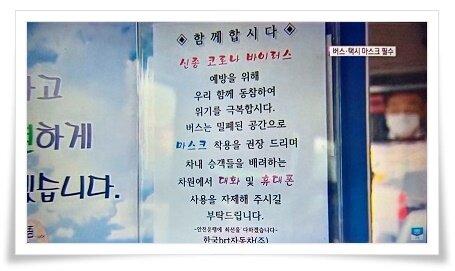 ◈ 함께합시다 ◈
신종 코로나 바이러스
예방을 위해
우리 함께 동참하여
위기를 극복합시다.
버스는 밀폐된 공간으로
마스크 착용을 권장 드리며
차내 승객들을 배려하는
차원에서 대화 및 휴대폰
사용을 자제해 주시길
부탁드립니다.
-안전운행에 최선을 다하겠습니다-
한국brt자동차(주)
버스·택시 마스크 필수
하고
하게
겠습니다.